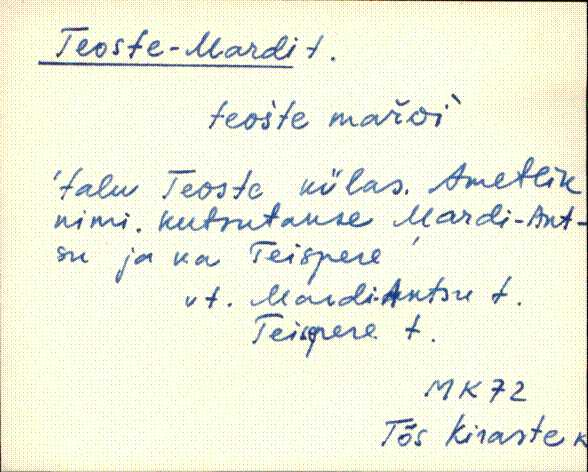 Teoste-Mardi t.
teošte mařoi`
'talu Teoste külas. Ametlik
nimi. kutsutakse Mardi-Ant-
su ja ka Teispere
vt. Mardi-Antsu t.
Teispere t.
MK72
Tõs Kiraste k